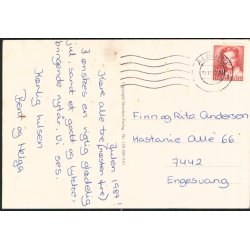 Julen 1989!
Kære alle tre (næsten fire)
I ønskes en rigtig glædelig
jul, samt et godt og lykke-
bringende nytår. Vi ses.
Kærlig hilsen
Bent og Helga.
Finn og Rita Andersen
Kastanie Allé 66
7442
Engesvang